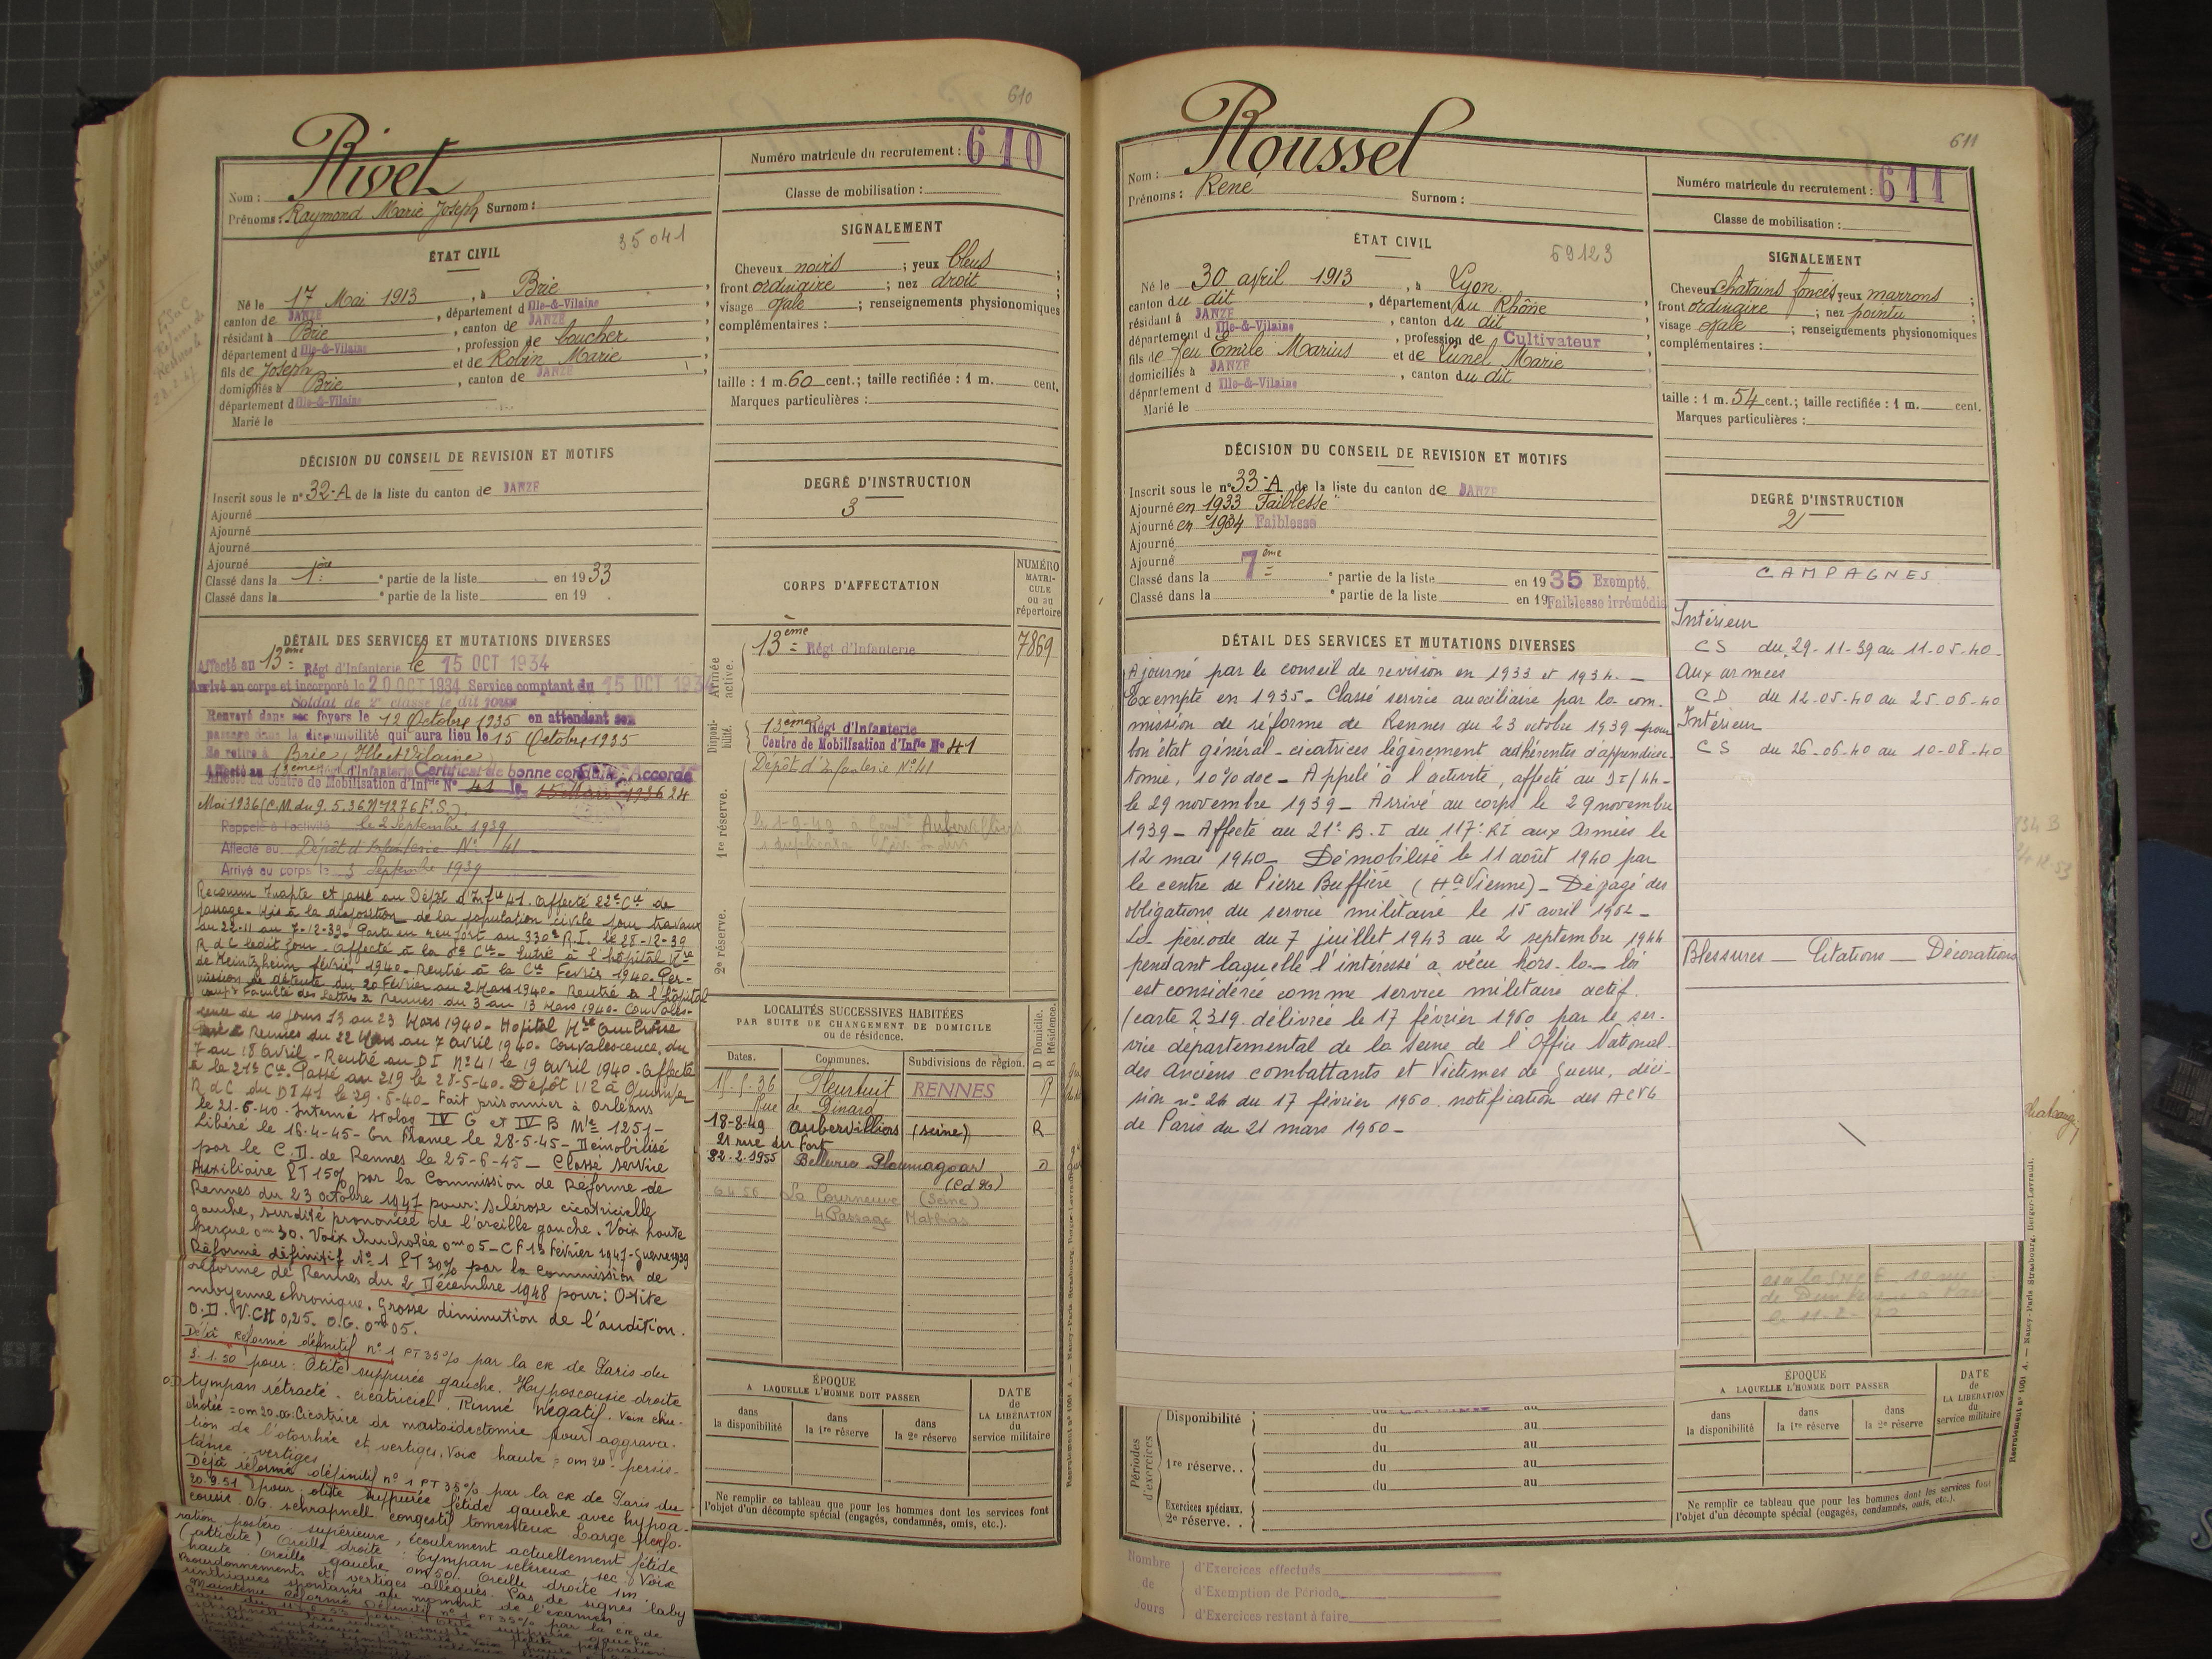 610
Rivet
Nom :
Prénoms : Raymond Marie Joseph Surnom :
Numéro matricule du recrutement : 610
Classe de mobilisation :
ÉTAT CIVIL
35041
Né le 17 Mai 1913, à Brie
canton de JANZÉ, département d Ille-&-Vilaine
résidant à Brie, canton de JANZÉ
département d Ille-&-Vilaine, profession de boucher
fils de Joseph et de Robin Marie
domiciliés à Brie, canton de JANZÉ
département d Ille-&-Vilaine
Marié le
SIGNALEMENT
Cheveux noirs ; yeux bleus ;
front ordinaire ; nez droit ;
visage ovale ; renseignements physionomiques
complémentaires :
taille : 1 m. 60 cent.; taille rectifiée : 1 m. cent.
Marques particulières :
DÉCISION DU CONSEIL DE REVISION ET MOTIFS
Inscrit sous le n° 32-A de la liste du canton de JANZÉ
Ajourné
Ajourné
Ajourné
Ajourné
Classé dans la 1ère partie de la liste en 1933
Classé dans la partie de la liste en 19 .
DEGRÉ D'INSTRUCTION
3
CORPS D'AFFECTATION
NUMÉRO MATRICULE ou au répertoire
Armée active.
13ème Régt d'Infanterie 7869
Disponibilité.
13ème Régt d'Infanterie
Centre de Mobilisation d'Infie N° 41
1re réserve.
Dépôt d'Infanterie N° 41
2e réserve.
DÉTAIL DES SERVICES ET MUTATIONS DIVERSES
Affecté au 13ème Régt d'Infanterie le 15 OCT 1934
Arrivé au corps et incorporé le 20 OCT 1934 Service comptant du 15 OCT 1934
Soldat de 2e classe le dit jour
Renvoyé dans ses foyers le 12 Octobre 1935 en attendant son
passage dans la disponibilité qui aura lieu le 15 Octobre 1935
Se retire à Brie, Ille et Vilaine
Certificat de bonne conduite : Accordé
Affecté au Centre de Mobilisation d'Infie N° 41 le 15 Mars 1936 24
Mai 1936 (C.M. du 9.5.36 N° 1276 F.S.)
Rappelé à l'activité le 2 Septembre 1939
Affecté au Dépôt d'Infanterie N° 41
Arrivé au corps le 3 Septembre 1939
Reconnu Inapte et passé au Dépôt d'Infie 41. Affecté 22e Cie de
passage. Mis à la disposition de la population civile pour travaux
au 22-11 au 7-12-39. Parti en renfort au 330e R.I. le 28-12-39
R d C ledit jour. Affecté à la 6e Cie. Entré à l'hôpital
de Heintzheim février 1940. Rentré à la Cie Février 1940. Per-
mission de détente du 20 Février au 2 Mars 1940. Rentré à l'hôpital
Faculté des Lettres à Rennes du 3 au 13 Mars 1940. Convales-
cence de 10 jours 13 au 23 Mars 1940. Hôpital
à Rennes du 22 Mars au 7 avril 1940. Convalescence du
7 au 18 avril. Rentré au DI N° 41 le 19 avril 1940. Affecté
à la 21e Cie. Passé au 219 le 28-5-40. Dépôt 112 à Quimper
R d C du DI 41 le 29-5-40. Fait prisonnier à Orléans
le 21-6-40. Interné Stalag IV G et IV B Mle 1251-
Libéré le 16-4-45- En France le 28-5-45- Démobilisé
par le C.D. de Rennes le 25-6-45- Classé Service
Auxiliaire PT 15% par la Commission de Réforme de
Rennes du 23 octobre 1947 pour : Sclérose cicatricielle
gauche, surdité prononcée de l'oreille gauche. Voix haute
perçue 0m30. Voix chuchotée 0m05- CF 13 Février 1947- Guerre 1939
Réformé définitif N° 1 PT 30% par la commission de
réforme de Rennes du 2 Décembre 1948 pour : Otite
moyenne chronique. Grosse diminution de l'audition.
O.D. V.CH 0,25. O.G. 0m05.
Déjà réformé définitif n° 1 PT 35% par la CR de Paris du
3.1.50 pour : Otite suppurée gauche. Hypoacousie droite
tympan rétracté. cicatriciel. Rinne négatif. Voix chu-
chotée = 0m20. OG. Cicatrice de mastoïdectomie pour aggrava-
tion de l'otorrhée et vertiges. Voix haute = 0m20. persis-
tance vertiges
Déjà réformé définitif n° 1 PT 35% par la CR de Paris du
20.9.51 pour : otite suppurée fétide gauche avec hypoa-
cousie. OG. schrapnell congestif tomenteux Large perfo-
ration postéro supérieure, écoulement actuellement fétide
(atticite) Oreille droite : tympan scléreux, sec. Voix
haute Oreille gauche 0m50. Oreille droite 1m.
Bourdonnements et vertiges allégués. Pas de signes laby
rinthiques spontanés au moment de l'examen.
Maintenu Réformé Définitif n° 1 PT 35% par la CR de
LOCALITÉS SUCCESSIVES HABITÉES
PAR SUITE DE CHANGEMENT DE DOMICILE
ou de résidence.
D Domicile. R Résidence.
Dates. Communes. Subdivisions de région.
Pleurtuit RENNES
Rue de Dinard
18-8-49 Aubervilliers (Seine) R
21 rue du Fort
22-2-1955 Bellevue Ploumagoar D
6.4.56 La Courneuve (Seine)
4 Passage Mathias
ÉPOQUE
A LAQUELLE L'HOMME DOIT PASSER
dans la disponibilité
dans la 1re réserve
dans la 2e réserve
DATE de LA LIBÉRATION du service militaire
Ne remplir ce tableau que pour les hommes dont les services font
l'objet d'un décompte spécial (engagés, condamnés, omis, etc.).
611
Roussel
Nom :
Prénoms : René Surnom :
Numéro matricule du recrutement : 611
Classe de mobilisation :
ÉTAT CIVIL
69123
Né le 30 avril 1913, à Lyon
canton du dit, département du Rhône
résidant à JANZÉ, canton du dit
département d Ille-&-Vilaine, profession de Cultivateur
fils de feu Emile Marius et de Lunel Marie
domiciliés à JANZÉ, canton du dit
département d Ille-&-Vilaine
Marié le
SIGNALEMENT
Cheveux châtains foncés yeux marrons ;
front ordinaire ; nez pointu ;
visage ovale ; renseignements physionomiques
complémentaires :
taille : 1 m. 54 cent.; taille rectifiée : 1 m. cent.
Marques particulières :
DÉCISION DU CONSEIL DE REVISION ET MOTIFS
Inscrit sous le n° 33-A de la liste du canton de JANZÉ
Ajourné en 1933 Faiblesse
Ajourné en 1934 Faiblesse
Ajourné
Ajourné
Classé dans la 7ème partie de la liste en 1935 Exempté.
Classé dans la partie de la liste en 19 Faiblesse irrémédia
DEGRÉ D'INSTRUCTION
2
DÉTAIL DES SERVICES ET MUTATIONS DIVERSES
Ajourné par le conseil de revision en 1933 et 1934. —
Exempté en 1935- Classé service auxiliaire par la com-
mission de réforme de Rennes du 23 octobre 1939 pour
bon état général - cicatrices légèrement adhérentes d'appendicec-
tomie, 10% doc - Appelé à l'activité, affecté au DI/44-
le 29 novembre 1939- Arrivé au corps le 29 novembre
1939- Affecté au 21e B.I du 117e RI aux Armées le
12 mai 1940- Démobilisé le 11 août 1940 par
le centre de Pierre Buffière (Hte Vienne)- Dégagé des
obligations du service militaire le 15 avril 1962-
La période du 7 juillet 1943 au 2 septembre 1944
pendant laquelle l'intéressé a vécu hors-la-loi
est considérée comme service militaire actif.
(carte 2319 délivrée le 17 février 1960 par le ser-
vice départemental de la Seine de l'Office National
des Anciens combattants et Victimes de guerre, déci-
sion n° 26 du 17 février 1960. notification des ACVG
de Paris du 21 mars 1960-
CAMPAGNES
Intérieur
CS du 29-11-39 au 11-05-40-
Aux armées
CD du 12-05-40 au 25-06-40
Intérieur
CS du 26-06-40 au 10-08-40
Blessures — Citations — Décorations
Périodes d'exercices
Disponibilité du au
du au
1re réserve.. du au
du au
Exercices spéciaux.
2e réserve. .
ÉPOQUE
A LAQUELLE L'HOMME DOIT PASSER
dans la disponibilité
dans la 1re réserve
dans la 2e réserve
DATE de LA LIBÉRATION du service militaire
Ne remplir ce tableau que pour les hommes dont les services font
l'objet d'un décompte spécial (engagés, condamnés, omis, etc.).
Nombre de Jours
d'Exercices effectués
d'Exemption de Période
d'Exercices restant à faire